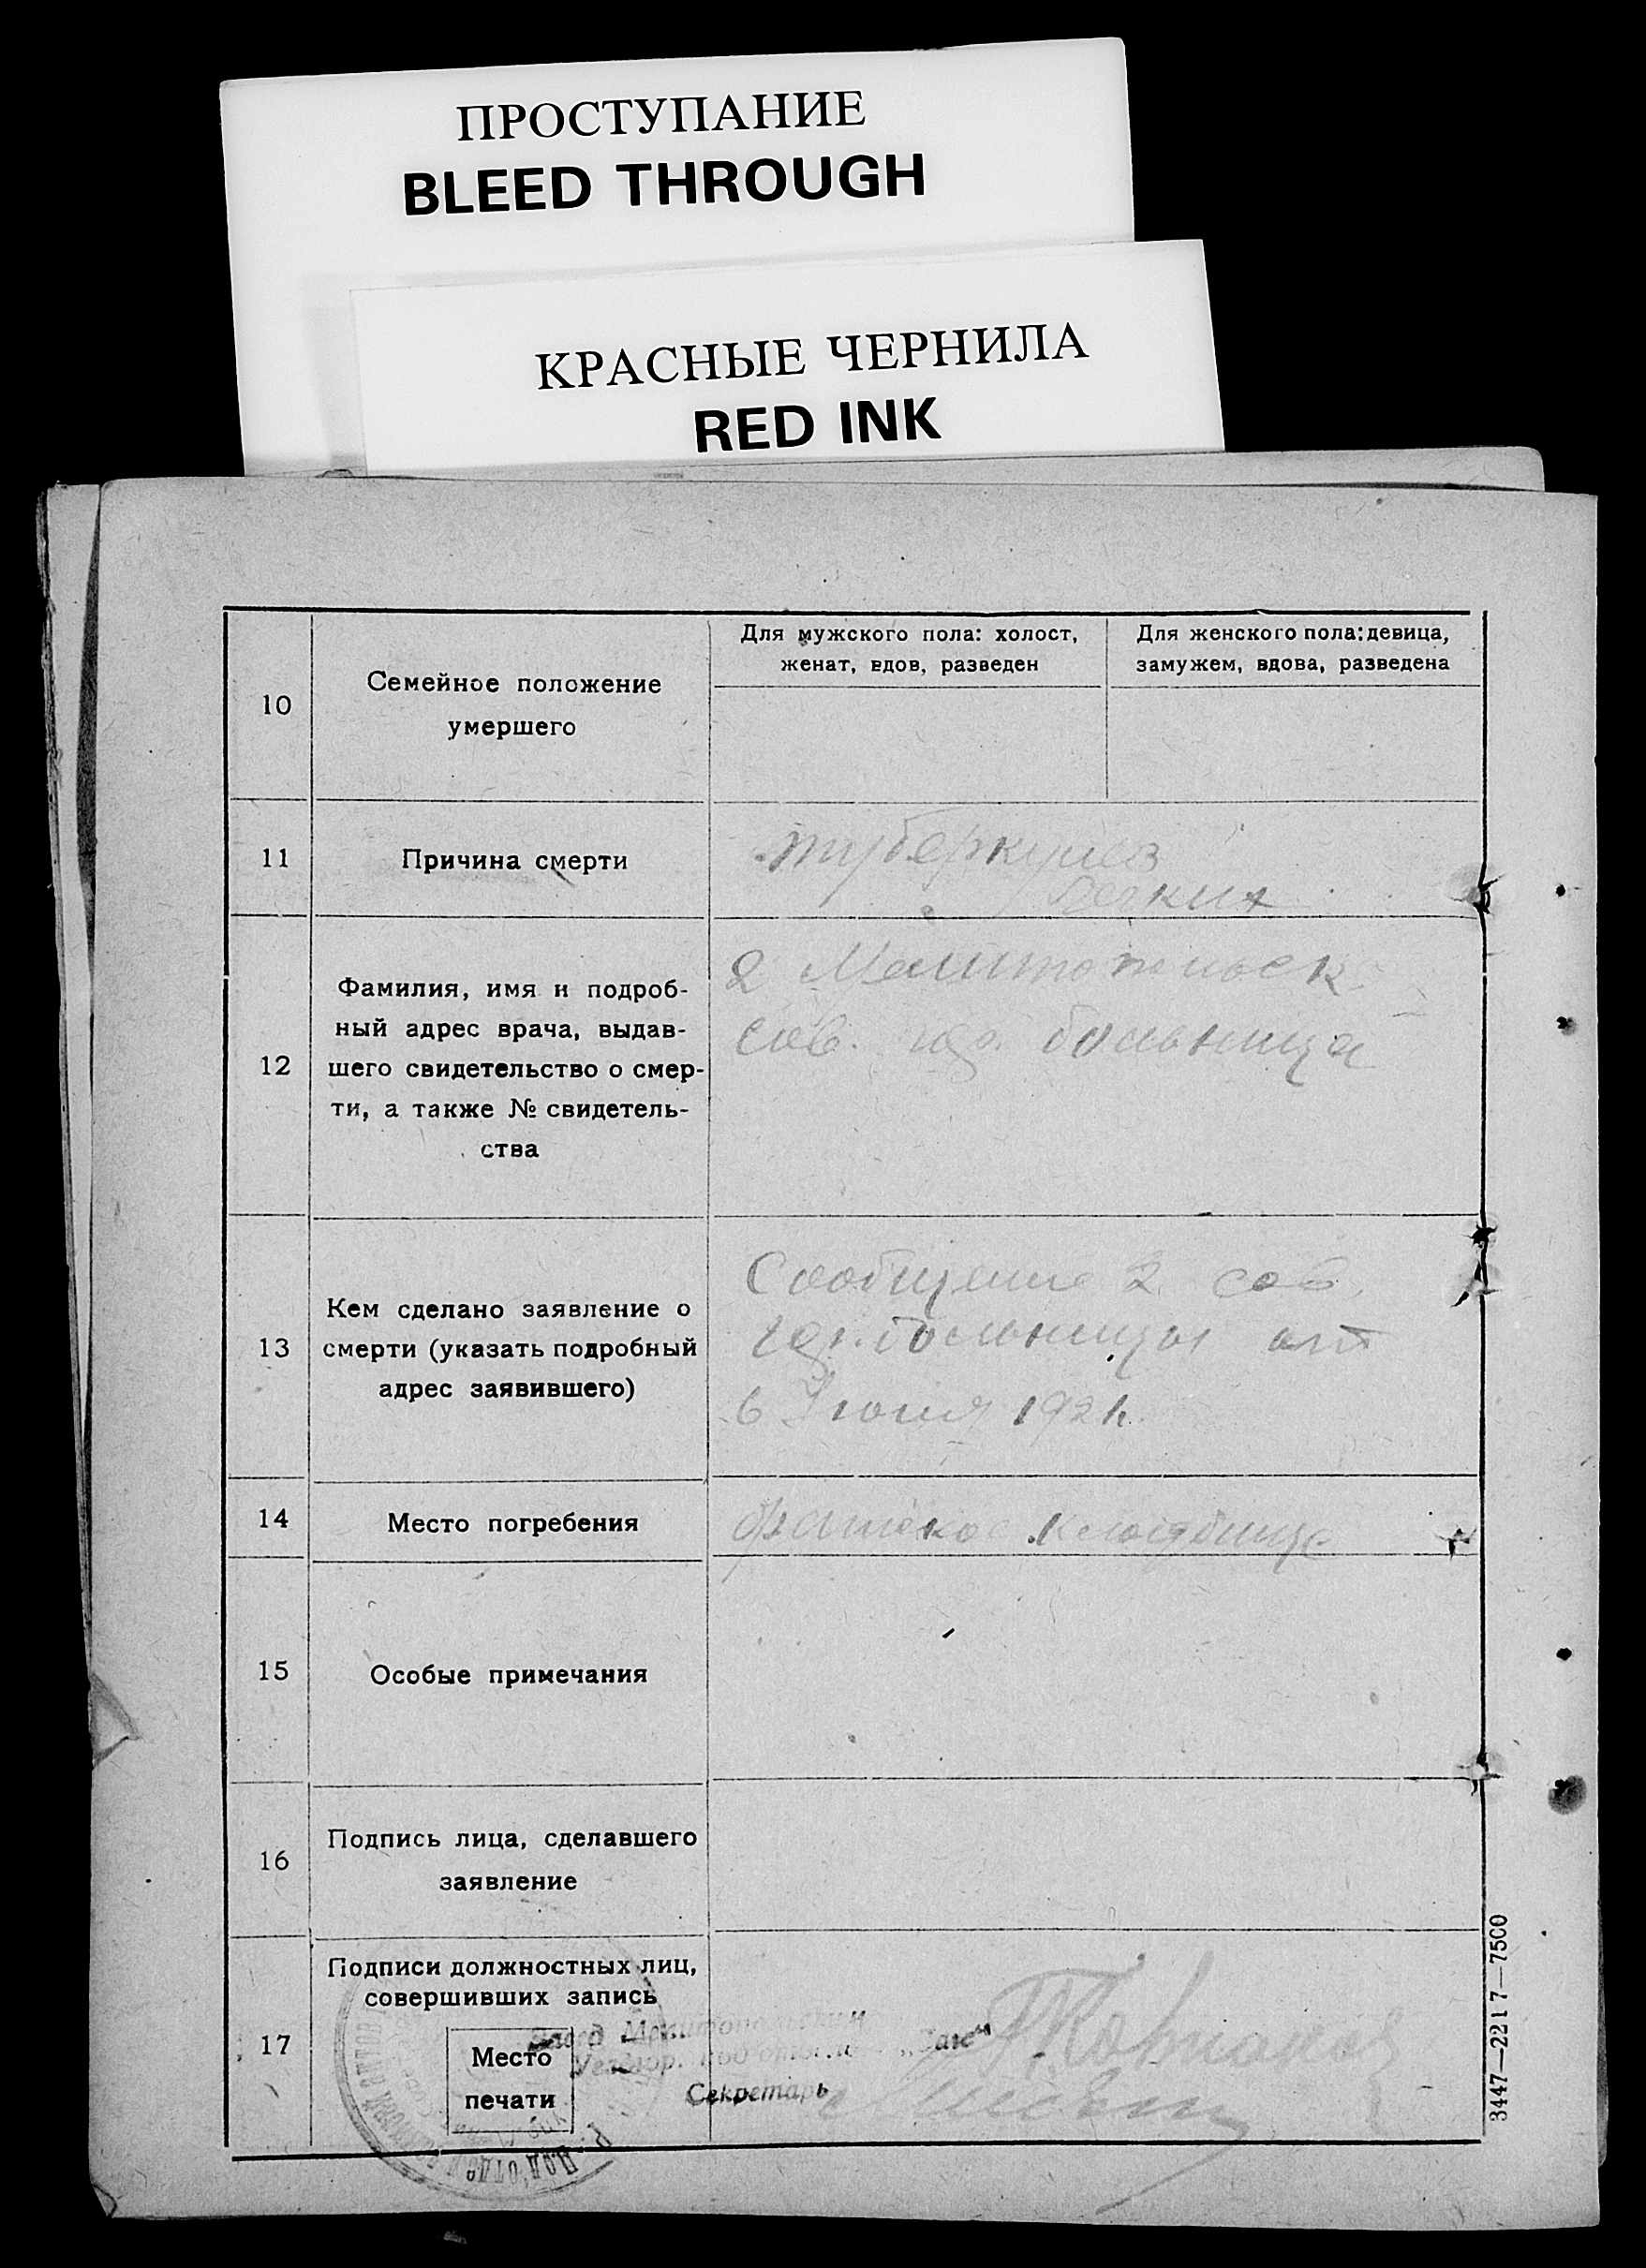 ПРОСТУПАНИЕ
BLEED THROUGH
КРАСНЫЕ ЧЕРНИЛА
RED INK
10
Семейное положение
умершего
Для мужского пола: холост,
женат, вдов, разведен
Для женского пола: девица,
замужем, вдова, разведена
11
Причина смерти
туберкулез
легких
12
Фамилия, имя и подроб-
ный адрес врача, выдав-
шего свидетельство о смер-
ти, а также № свидетель-
ства
2 Мелитопольск
сов. больница
13
Кем сделано заявление о
смерти (указать подробный
адрес заявившего)
Сообщение 2 сов.
больницы от
6 Июня 1921 г.
14
Место погребения
братское кладбище
15
Особые примечания
16
Подпись лица, сделавшего
заявление
17
Подписи должностных лиц,
совершивших запись
Место
печати
Секретарь
3447—2217—7500